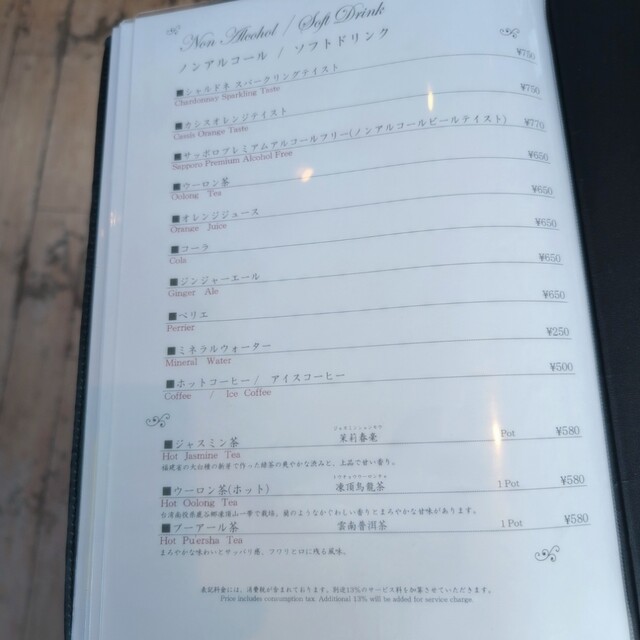 Non Alcohol / Soft Drink
ノンアルコール / ソフトドリンク
■シャルドネ スパークリングテイスト ¥750
Chardonnay Sparkling Taste
■カシスオレンジテイスト ¥750
Cassis Orange Taste
■サッポロプレミアムアルコールフリー(ノンアルコールビールテイスト) ¥770
Sapporo Premium Alcohol Free
■ウーロン茶 ¥650
Oolong Tea
■オレンジジュース ¥650
Orange Juice
■コーラ ¥650
Cola
■ジンジャーエール ¥650
Ginger Ale
■ペリエ ¥650
Perrier
■ミネラルウォーター ¥250
Mineral Water
■ホットコーヒー / アイスコーヒー ¥500
Coffee / Ice Coffee
■ジャスミン茶 茉莉春毫 1 Pot ¥580
Hot Jasmine Tea
福建省の大白種の新芽で作った緑茶の爽やかな渋みと、上品で甘い香り。
■ウーロン茶(ホット) 凍頂烏龍茶 1 Pot ¥580
Hot Oolong Tea
台湾南投県鹿谷郷凍頂山一帯で栽培。蘭のようなかぐわしい香りとまろやかな甘味があります。
■プーアール茶 雲南普洱茶 1 Pot ¥580
Hot Puersha Tea
まろやかな味わいとサッパリ感、フワリと口に残る風味。
表記料金には、消費税が含まれております。別途13%のサービス料を加算させていただきます。
Price includes consumption tax. Additional 13% will be added for service charge.